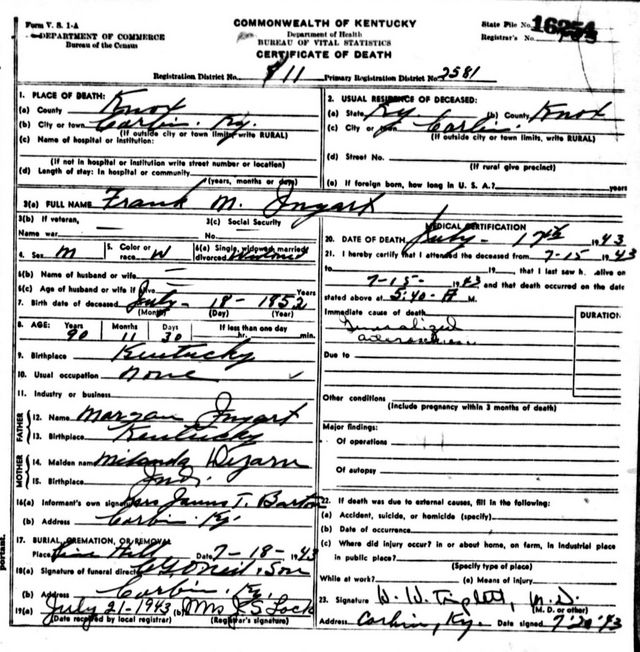 Form V. S. 1-A
DEPARTMENT OF COMMERCE
Bureau of the Census
COMMONWEALTH OF KENTUCKY
Department of Health
BUREAU OF VITAL STATISTICS
CERTIFICATE OF DEATH
State File No. 16254
Registrar's No.
Registration District No. 811 Primary Registration District No. 2581
1. PLACE OF DEATH:
(a) County Knox
(b) City or town Corbin Ky.
(If outside city or town limits, write RURAL)
(c) Name of hospital or institution:
(If not in hospital or institution write street number or location)
(d) Length of stay: In hospital or community
(years, months or days)
2. USUAL RESIDENCE OF DECEASED:
(a) State Ky (b) County Knox
(c) City or town Corbin
(If outside city or town limits, write RURAL)
(d) Street No.
(If rural give precinct)
(e) If foreign born, how long in U. S. A.? years
3(a) FULL NAME Frank M. Ingart
3(b) If veteran,
Name war
3(c) Social Security
No.
4. Sex M
5. Color or
race W
6(a) Single, widowed, married
divorced Widowed
6(b) Name of husband or wife
6(c) Age of husband or wife if alive Years
7. Birth date of deceased July 18 - 1852
(Month) (Day) (Year)
8. AGE: Years Months Days If less than one day
90 11 30 hr. min.
9. Birthplace Kentucky
10. Usual occupation None
11. Industry or business
FATHER
12. Name Morgan Ingart
13. Birthplace Kentucky
MOTHER
14. Maiden name
15. Birthplace Ind.
16(a) Informant's own signature Mrs James T. Barton
(b) Address Corbin Ky.
17. BURIAL, CREMATION, OR REMOVAL
Place Pine Hill Date 7-18-1943
18(a) Signature of funeral director O'Neil & Son
(b) Address Corbin Ky.
19(a) July 21-1943 (b) Mrs J S Lock
(Date received by local registrar) (Registrar's signature)
MEDICAL CERTIFICATION
20. DATE OF DEATH July - 17th 1943
21. I hereby certify that I attended the deceased from 7-15 1943
to 19 , that I last saw h alive on
7-15- 1943 and that death occurred on the date
stated above at 5:40-A M.
Immediate cause of death
Generalized
DURATION
Due to
Other conditions
(Include pregnancy within 3 months of death)
Major findings:
Of operations
Of autopsy
22. If death was due to external causes, fill in the following:
(a) Accident, suicide, or homicide (specify)
(b) Date of occurrence
(c) Where did injury occur? in or about home, on farm, in industrial place
in public place?
(Specify type of place)
While at work? (e) Means of injury
23. Signature W. W. Triplett, M.D.
(M. D. or other)
Address Corbin, Ky. Date signed 7/20/43
portant.